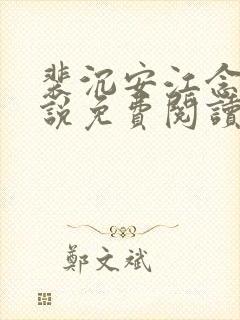 裴沉安江念
說免費閱讀
鄭文斌